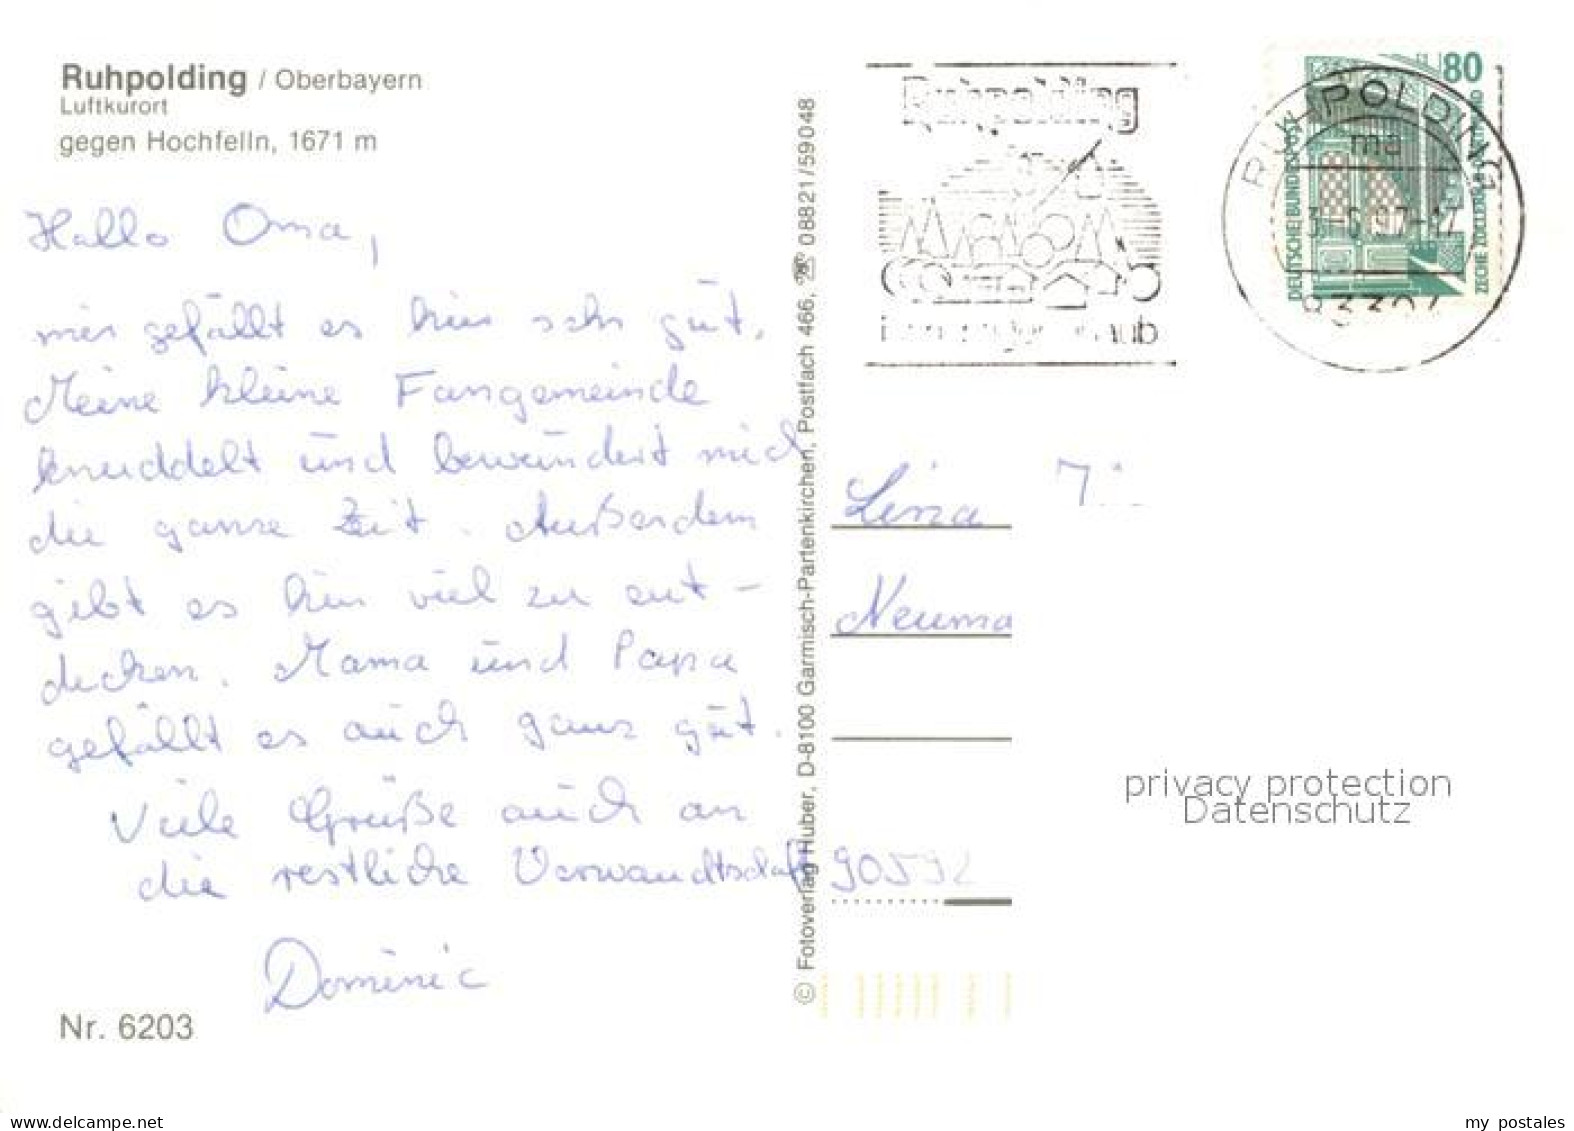 Ruhpolding / Oberbayern
Luftkurort
gegen Hochfelln, 1671 m
Hallo Oma,
mir gefällt es hier sehr gut.
Meine kleine Fangemeinde
knuddelt und bewundert mich
die ganze Zeit. Außerdem
gibt es hier viel zu ent-
decken. Mama und Papa
gefällt es auch ganz gut.
Viele Grüße auch an
die restliche Verwandtschaft
Dominic
Nr. 6203
© Fotoverlag Huber, D-8100 Garmisch-Partenkirchen, Postfach 466, ☏ 08821/59048
Ruhpolding
80
DEUTSCHE BUNDESPOST
ZECHE ZOLLERN II DORTMUND
RUHPOLDING
ma
97-17
Neuma
90592
privacy protection
Datenschutz
www.delcampe.net
my_postales